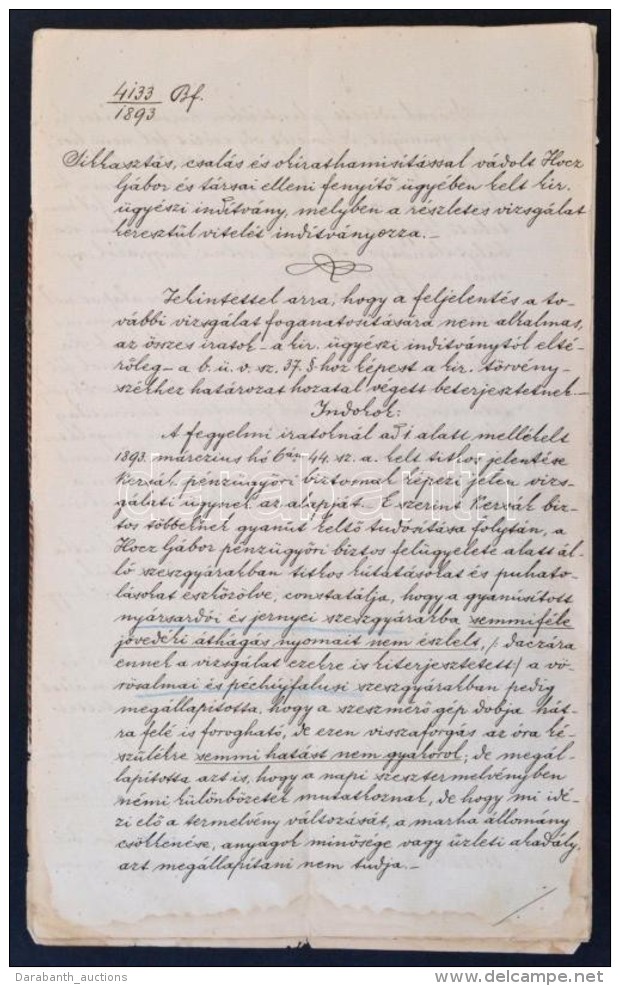 4133 Bf.
1893
Sikkasztás, csalás és okirathamisitással vádolt Hocz
Gábor és társai elleni fenyitő ügyében kelt kir.
ügyészi inditvány, melyben a részletes vizsgálat
keresztül vitelét inditványozza. –
Tekintettel arra, hogy a feljelentés a to-
vábbi vizsgálat foganatositására nem alkalmas,
az összes iratok – a kir. ügyészi inditványtól elté-
rőleg – a b. ü. v. sz. 37. § hoz képest a kir. törvény-
székhez határozat hozatal végett beterjesztetnek. –
Indokok:
A fegyelmi iratoknál a 1 alatt mellékelt
1893. márczius hó 6án 44. sz. a. kelt titkos jelentése
Kerzák pénzügyőri biztosnak képezi jelen vizs-
gálati ügynek az alapját. E szerint Kerzák biz-
tos többeknek gyanút keltő tudositása folytán, a
Hocz Gábor pénzügyőri biztos felügyelete alatt ál-
ló szeszgyárakban titkos kutatásokat és puhato-
lásokat eszközölve, constatálja, hogy a gyanúsitott
nyársardói és jernyei szeszgyárakba semmiféle
jövedéki áthágás nyomait nem észlelt, /: daczára
ennek a vizsgálat ezekre is kiterjesztetett / a vö-
rösalmai és péchújfalusi szeszgyárakban pedig
megállapitotta, hogy a szeszmérő gép dobja hát-
ra felé is forogható, de ezen visszaforgás az óra ké-
szülékre semmi hatást nem gyakorol; de megál-
lapitotta azt is, hogy a napi szesztermelvényben
némi különbözetek mutatkoznak, de hogy mi idé-
zi elő a termelvény változását, a marha állomány
csökkenése, anyagok minősége vagy üzleti akadály,
azt megállapitani nem tudja. –
darabanth
Darabanth_auctions